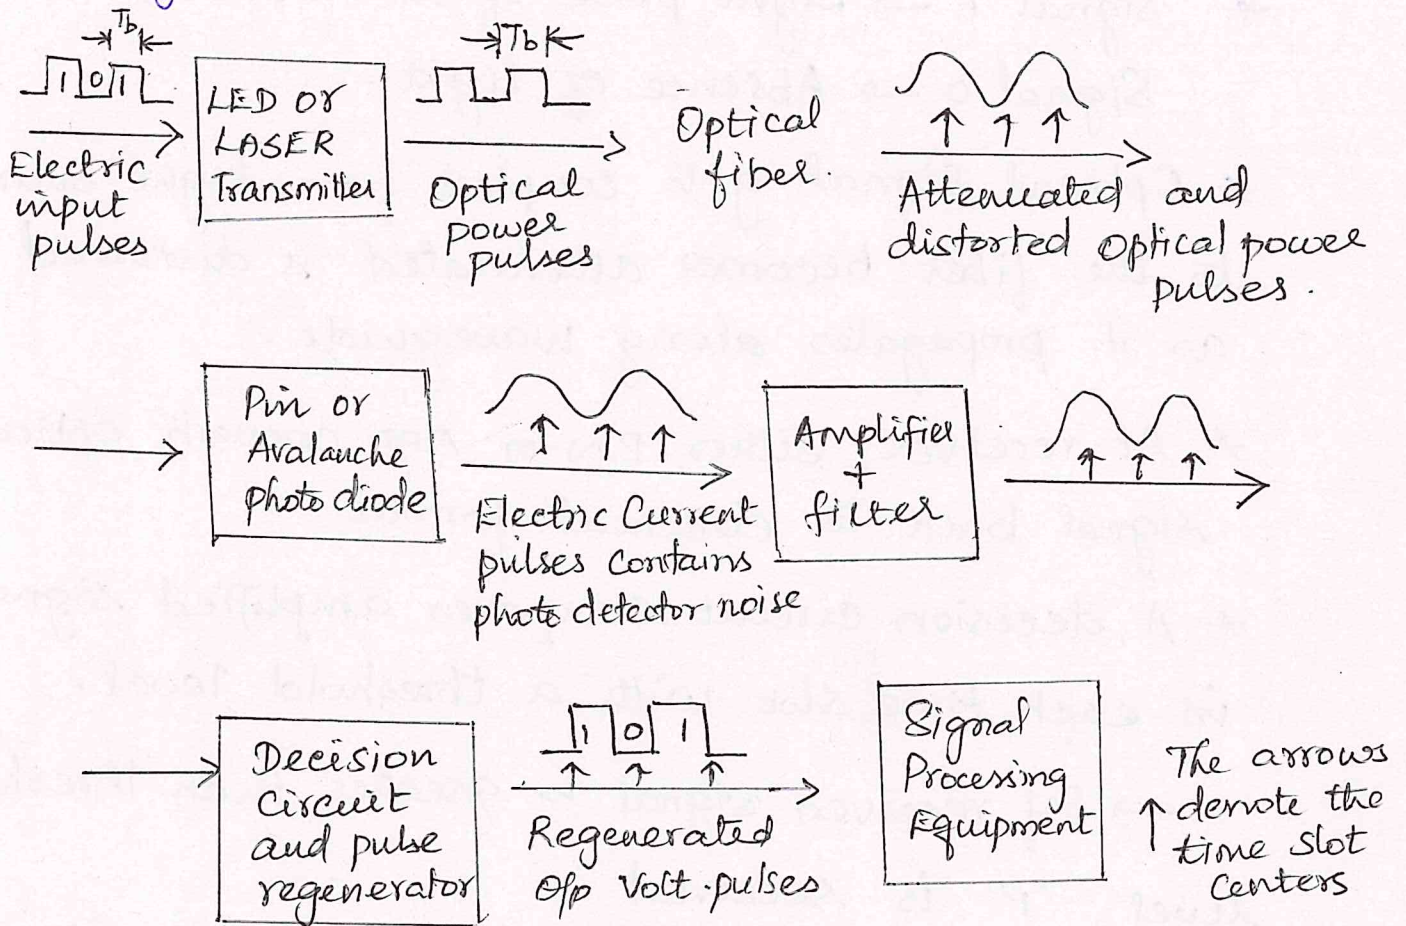 Tb
1 0 1
Electric
input
pulses
LED or
LASER
Transmitter
Tb
Optical
power
pulses
Optical
fiber.
Attenuated and
distorted Optical power
pulses.
Pin or
Avalanche
photo diode
Electric Current
pulses contains
photo detector noise
Amplifier
+
filter
Decision
circuit
and pulse
regenerator
1 0 1
Regenerated
O/p Volt. pulses
Signal
Processing
Equipment
The arrows
denote the
time slot
centers